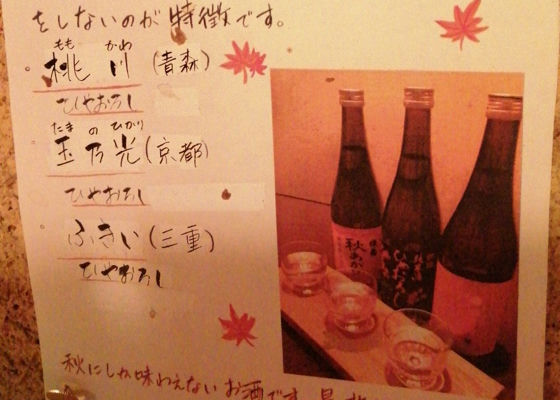 をしないのが特徴です。
もも かわ
桃川(青森)
ひやおろし
たまのひかり
玉乃光(京都)
ひやおろし
ふきい(三重)
ひやおろし
秋にしか味わえないお酒です。
秋あが